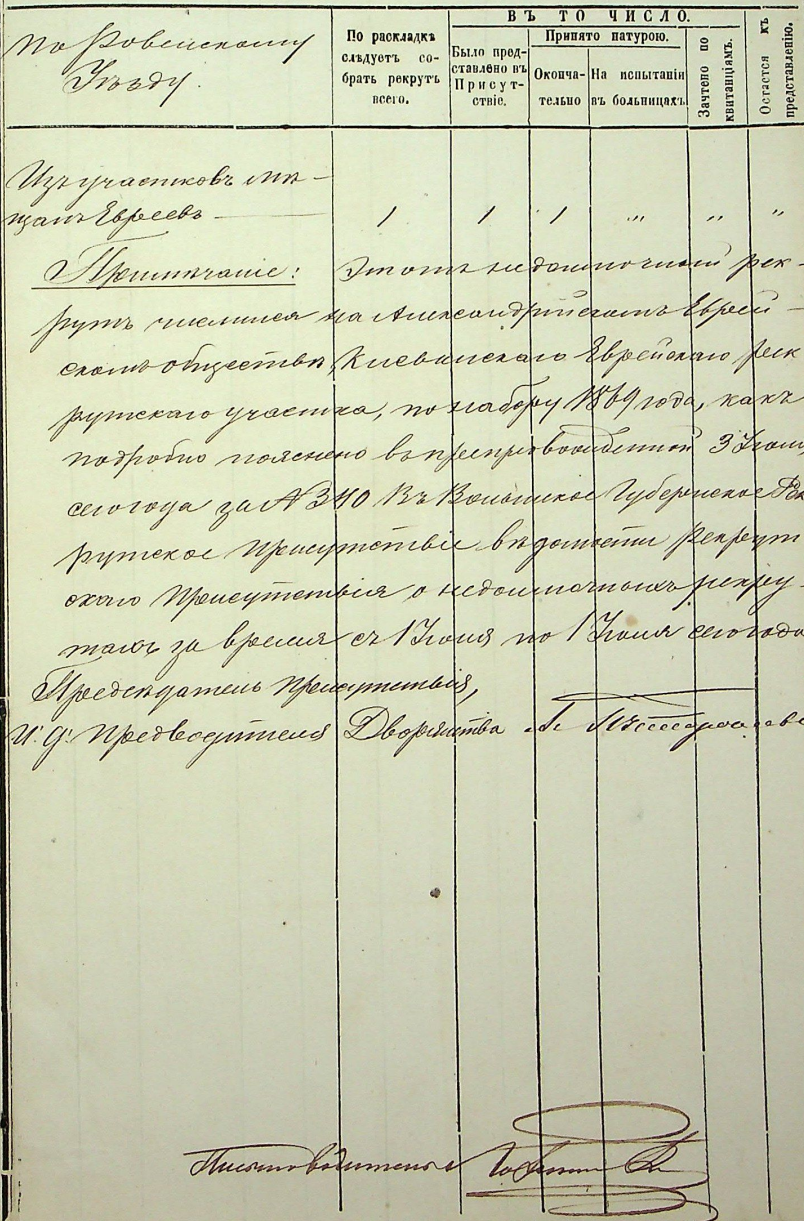 По Ровенскому
Уѣзду.
По раскладкѣ
слѣдуетъ со-
брать рекрутъ
всего.
ВЪ ТО ЧИСЛО.
Было пред-
ставлено въ
Присут-
ствіе.
Принято натурою.
Оконча-
тельно
На испытаніи
въ больницахъ
Зачтено по
квитанціямъ.
Остается къ
представленію.
Изъ участковъ мѣ-
щанъ Евреевъ 1 1 1 " " "
Примѣчаніе: Этотъ недоимочный рек-
рутъ числился на Александрійскомъ Еврей-
скомъ обществѣ Клеванскаго Еврейскаго рек
рутскаго участка, по набору 1869 года, какъ
подробно пояснено въ препровожденной 3 Іюля
сего года за № 340 въ Волынское Губернское Рек
рутское Присутствіе вѣдомости Рекрут
скаго Присутствія о недоимочныхъ рекру-
тахъ за время съ 1 Іюня по 1 Іюля сего года
Предсѣдатель Присутствія,
И. д. Предводителя Дворянства А.
Письмоводитель